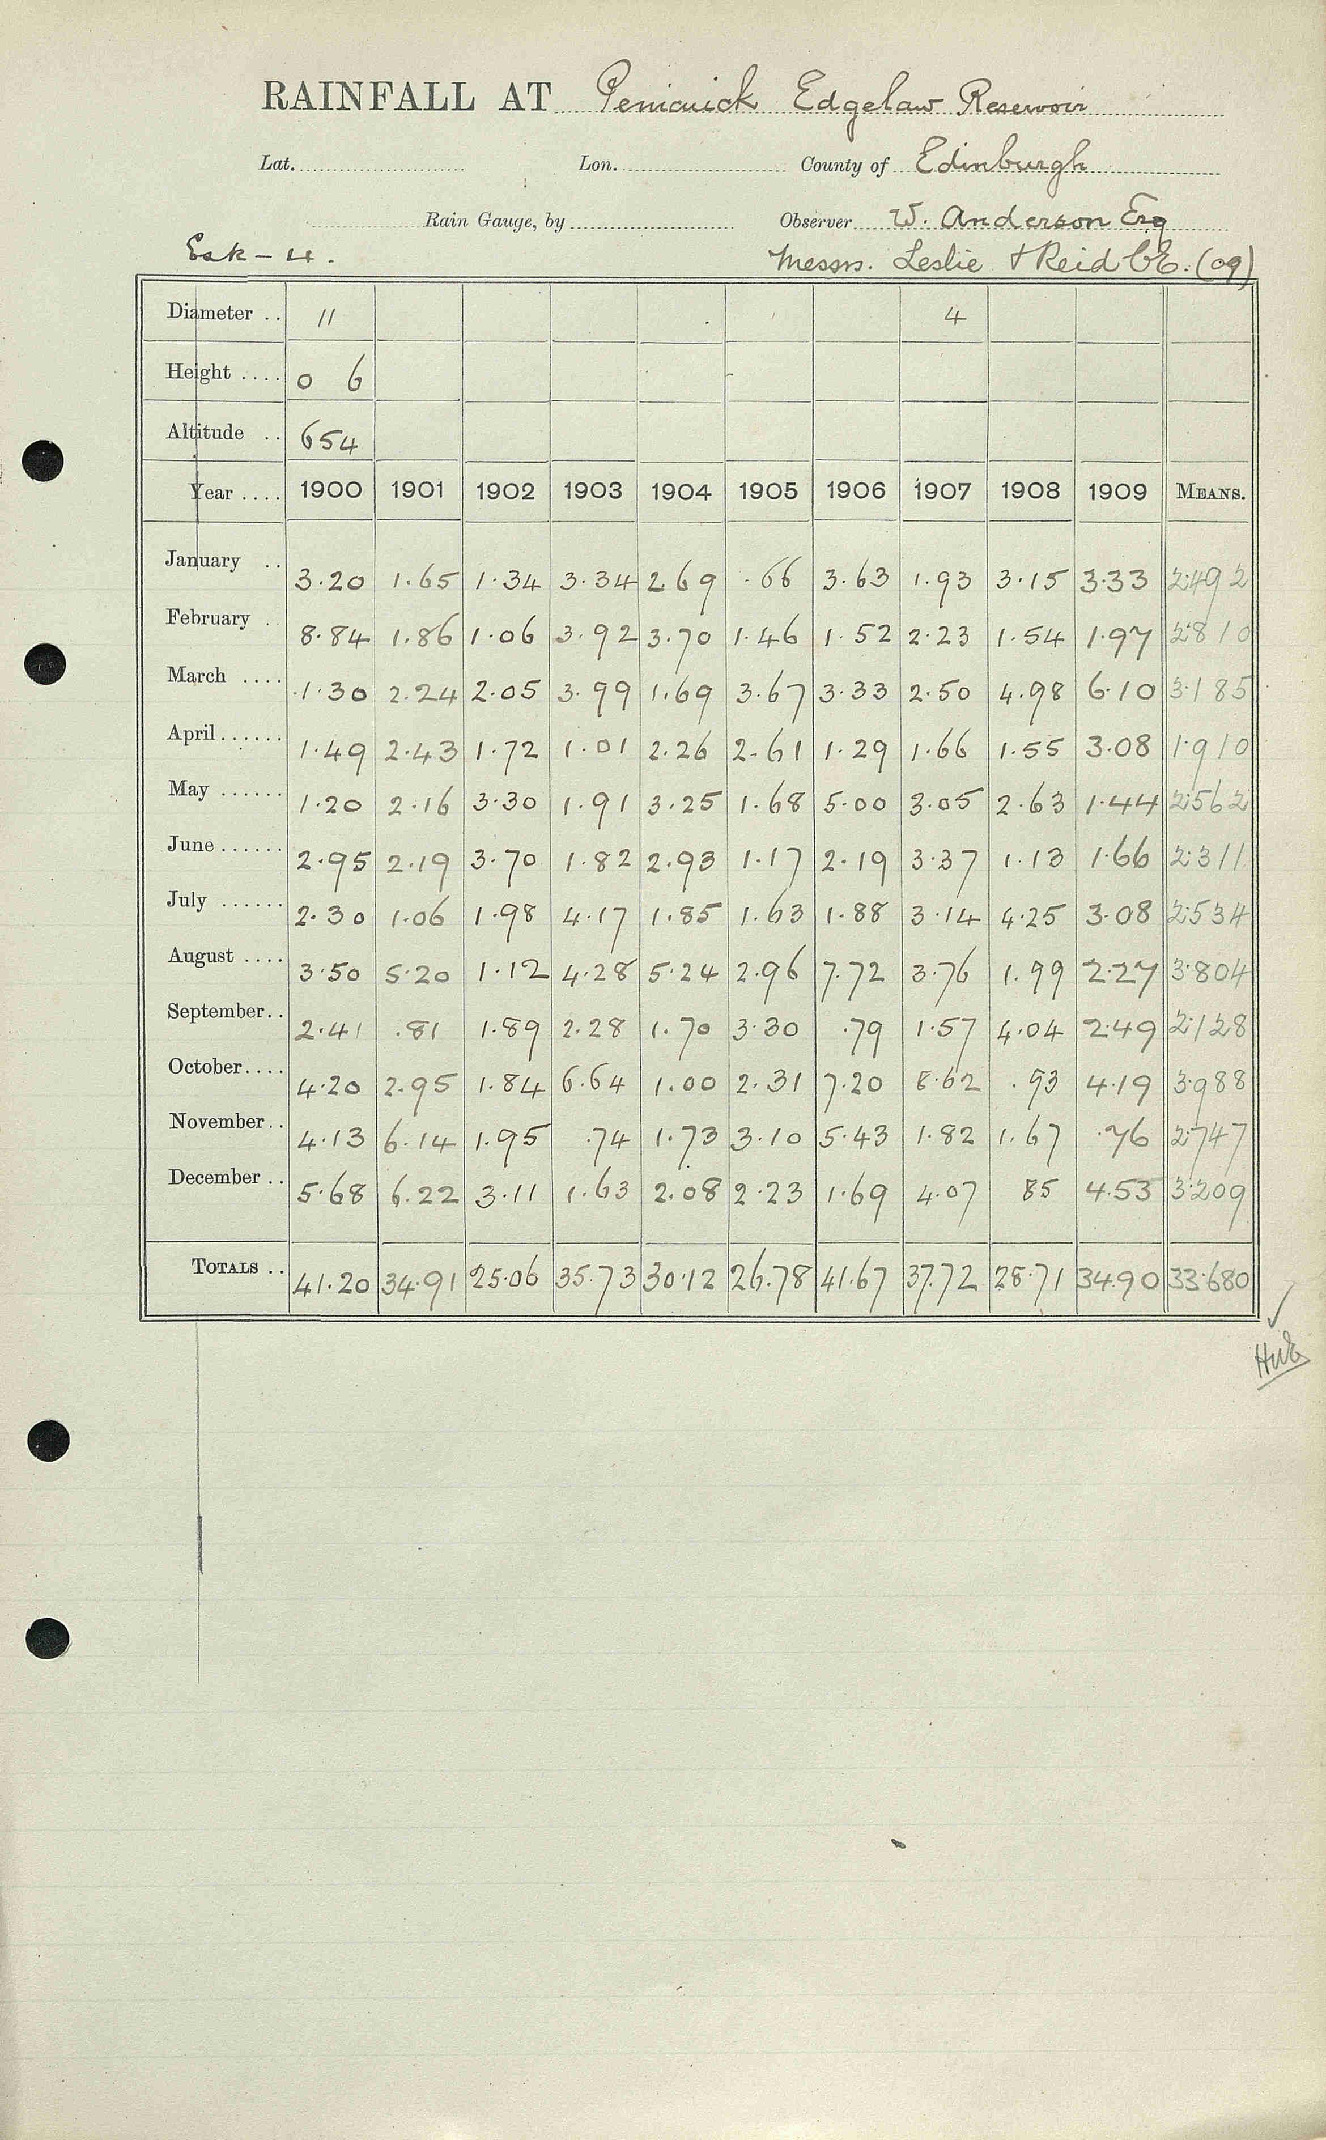 RAINFALL AT Penicuick Edgelaw Reservoir
Lat. Lon. County of Edinburgh
Rain Gauge, by Observer W. Anderson Esq
Esk - 4. Messrs. Leslie & Reid CE. (09)
Diameter .. 11 4
Height .... 0 6
Altitude .. 654
Year .... 1900 1901 1902 1903 1904 1905 1906 1907 1908 1909 MEANS.
January .. 3.20 1.65 1.34 3.34 2 69 .66 3.63 1.93 3.15 3.33 2.492
February .. 8.84 1.86 1.06 3.92 3.70 1.46 1.52 2.23 1.54 1.97 2.810
March .... 1.30 2.24 2.05 3.99 1.69 3.67 3.33 2.50 4.98 6.10 3.185
April ...... 1.49 2.43 1.72 1.01 2.26 2.61 1.29 1.66 1.55 3.08 1.910
May ...... 1.20 2.16 3.30 1.91 3.25 1.68 5.00 3.05 2.63 1.44 2.562
June ...... 2.95 2.19 3.70 1.82 2.93 1.17 2.19 3.37 1.13 1.66 2.311
July ...... 2.30 1.06 1.98 4.17 1.85 1.63 1.88 3.14 4.25 3.08 2.534
August .... 3.50 5.20 1.12 4.28 5.24 2.96 7.72 3.76 1.99 2.27 3.804
September .. 2.41 .81 1.89 2.28 1.70 3.30 .79 1.57 4.04 2.49 2.128
October .... 4.20 2.95 1.84 6.64 1.00 2.31 7.20 8.62 .93 4.19 3.988
November .. 4.13 6.14 1.95 .74 1.73 3.10 5.43 1.82 1.67 .76 2.747
December .. 5.68 6.22 3.11 1.63 2.08 2.23 1.69 4.07 85 4.53 3.209
TOTALS .. 41.20 34.91 25.06 35.73 30.12 26.78 41.67 37.72 28.71 34.90 33.680